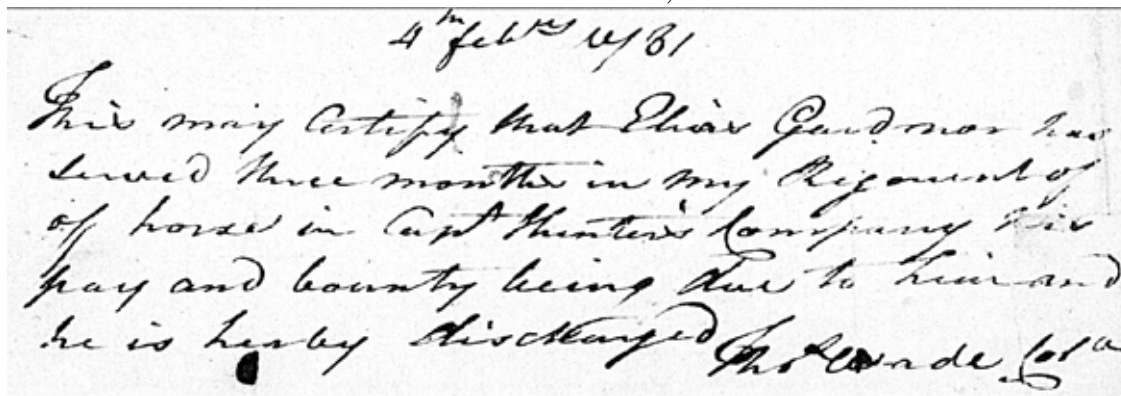 4th febry 1781
This may Certify that Elias Gardnor has
served three months in my Rigement of
of horse in Capt Hunter's Company his
pay and bounty being due to him and
he is herby discharged Tho Wade Col